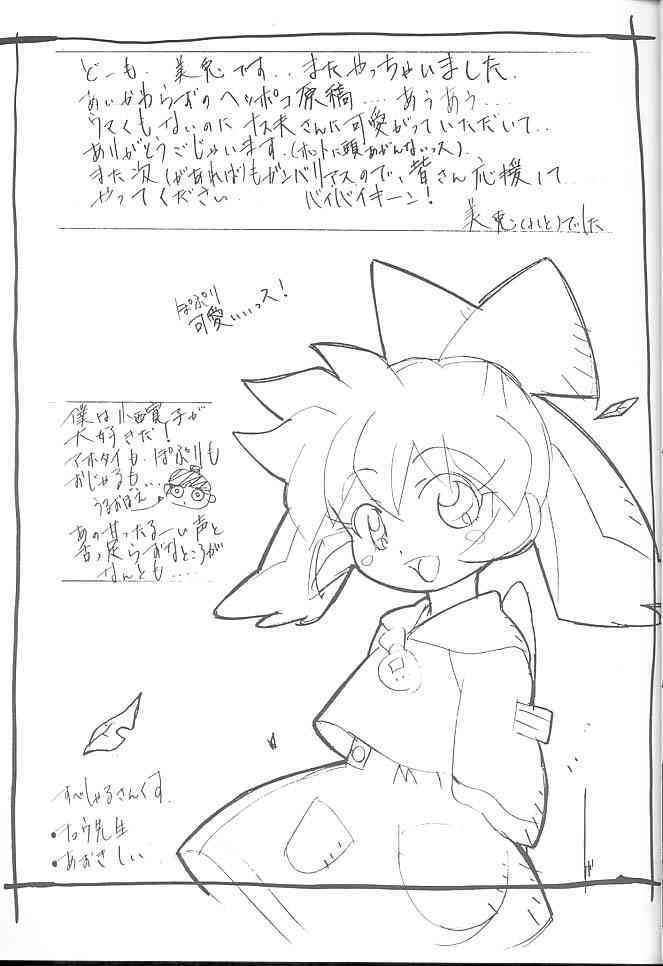 どーも. 美兎です.. またやっちゃいました.
あいかわらずのヘッポコ原稿.... あうあう....
ウマくもないのに さんに可愛がっていただいて..
ありがとうごじゃいます.(ホントに頭あがんないっス).
また次(があれば)もガンバリマスので、皆さん応援して
やってください. バイバイキーン!
美兎(みと)でした
ぽぷり
可愛いいっス!
僕は小西寛子が
大好きだ!
も. ぽぷりも
おじゃるも...
うろおぼえ
あの甘ったるーい声と
舌っ足らずなところが
なんとも....
すぺしゃるさんくす.
・ 先生
・あおきしい